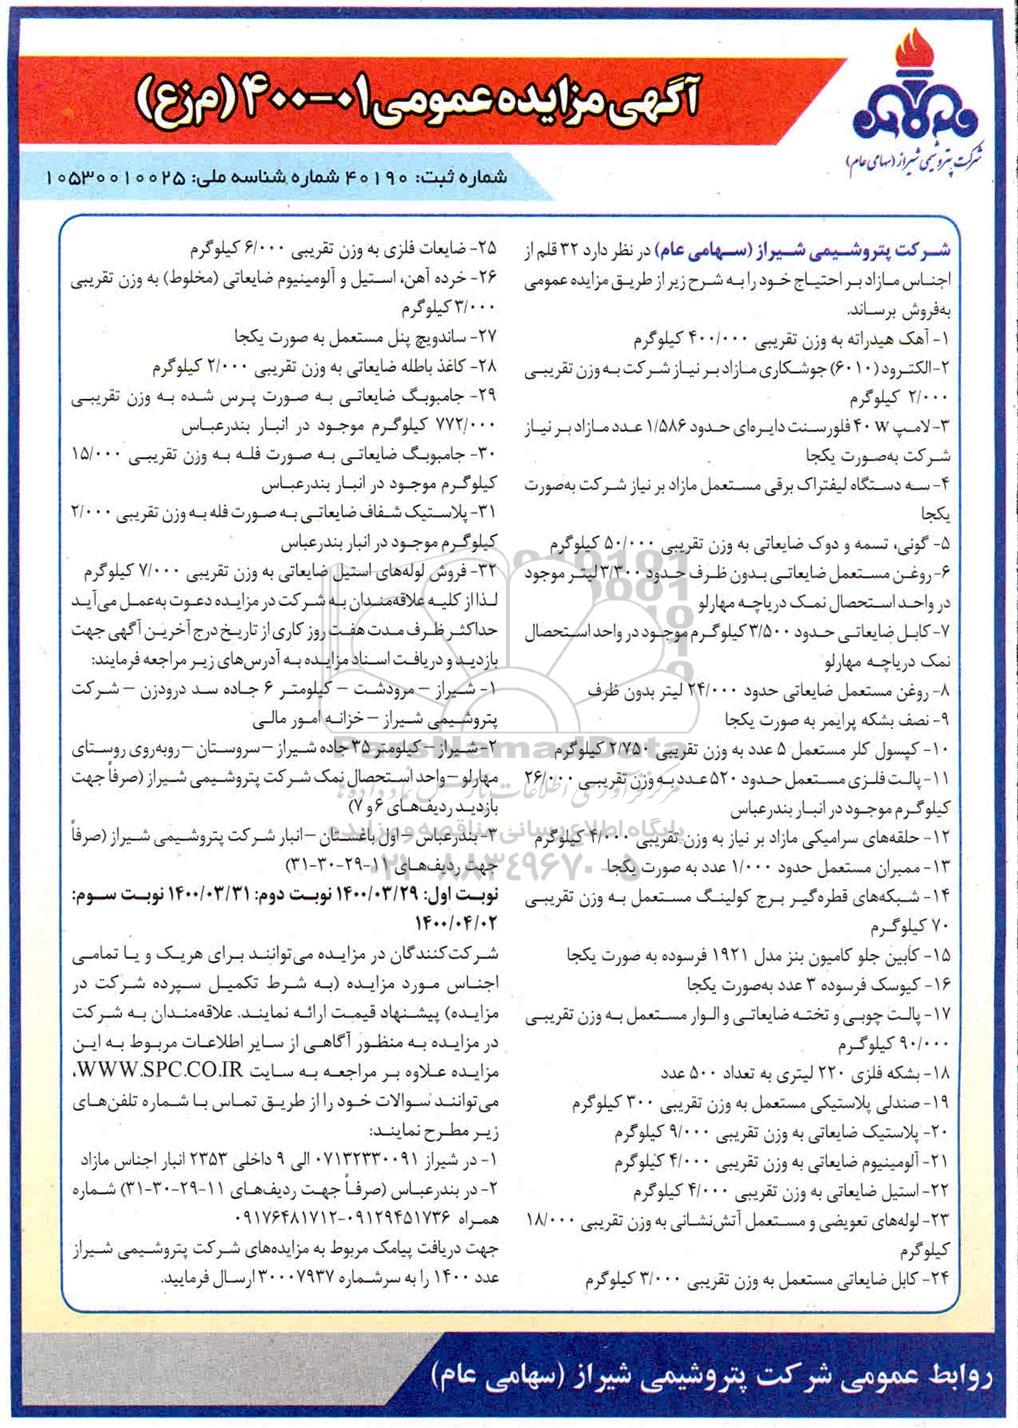 آگهی مزایده عمومی ۰۱-۴۰۰ (م ز ع)
شرکت پتروشیمی شیراز (سهامی عام)
شماره ثبت: ۴۰۱۹۰ شماره شناسه ملی: ۱۰۵۳۰۰۱۰۰۲۵
شرکت پتروشیمی شیراز (سهامی عام) در نظر دارد ۳۲ قلم از
اجناس مازاد بر احتیاج خود را به شرح زیر از طریق مزایده عمومی
به‌فروش برساند.
۱- آهک هیدراته به وزن تقریبی ۴۰۰/۰۰۰ کیلوگرم
۲-الکترود (۶۰۱۰) جوشکاری مازاد بر نیاز شرکت به وزن تقریبی
۲/۰۰۰ کیلوگرم
۳- لامپ ۴۰ W فلورسنت دایره‌ای حدود ۱/۵۸۶ عدد مازاد بر نیاز
شرکت به‌صورت یکجا
۴- سه دستگاه لیفتراک برقی مستعمل مازاد بر نیاز شرکت به‌صورت
یکجا
۵- گونی، تسمه و دوک ضایعاتی به وزن تقریبی ۵۰/۰۰۰ کیلوگرم
۶- روغن مستعمل ضایعاتی بدون ظرف حدود ۳/۳۰۰ لیتر موجود
در واحد استحصال نمک دریاچه مهارلو
۷- کابل ضایعاتی حدود ۳/۵۰۰ کیلوگرم موجود در واحد استحصال
نمک دریاچه مهارلو
۸- روغن مستعمل ضایعاتی حدود ۲۴/۰۰۰ لیتر بدون ظرف
۹- نصف بشکه پرایمر به صورت یکجا
۱۰- کپسول کلر مستعمل ۵ عدد به وزن تقریبی ۲/۷۵۰ کیلوگرم
۱۱- پالت فلزی مستعمل حدود ۵۲۰ عدد به وزن تقریبی ۲۶/۰۰۰
کیلوگرم موجود در انبار بندرعباس
۱۲- حلقه‌های سرامیکی مازاد بر نیاز به وزن تقریبی ۴/۰۰۰ کیلوگرم
۱۳- ممبران مستعمل حدود ۱/۰۰۰ عدد به صورت یکجا
۱۴- شبکه‌های قطره‌گیر برج کولینگ مستعمل به وزن تقریبی
۷۰ کیلوگرم
۱۵- کابین جلو کامیون بنز مدل ۱۹۲۱ فرسوده به صورت یکجا
۱۶- کیوسک فرسوده ۳ عدد به‌صورت یکجا
۱۷- پالت چوبی و تخته ضایعاتی و الوار مستعمل به وزن تقریبی
۹۰/۰۰۰ کیلوگرم
۱۸- بشکه فلزی ۲۲۰ لیتری به تعداد ۵۰۰ عدد
۱۹- صندلی پلاستیکی مستعمل به وزن تقریبی ۳۰۰ کیلوگرم
۲۰- پلاستیک ضایعاتی به وزن تقریبی ۹/۰۰۰ کیلوگرم
۲۱- آلومینیوم ضایعاتی به وزن تقریبی ۴/۰۰۰ کیلوگرم
۲۲- استیل ضایعاتی به وزن تقریبی ۴/۰۰۰ کیلوگرم
۲۳- لوله‌های تعویضی و مستعمل آتش‌نشانی به وزن تقریبی ۱۸/۰۰۰
کیلوگرم
۲۴- کابل ضایعاتی مستعمل به وزن تقریبی ۳/۰۰۰ کیلوگرم
۲۵- ضایعات فلزی به وزن تقریبی ۶/۰۰۰ کیلوگرم
۲۶- خرده آهن، استیل و آلومینیوم ضایعاتی (مخلوط) به وزن تقریبی
۳/۰۰۰ کیلوگرم
۲۷- ساندویچ پنل مستعمل به صورت یکجا
۲۸- کاغذ باطله ضایعاتی به وزن تقریبی ۲/۰۰۰ کیلوگرم
۲۹- جامبوبگ ضایعاتی به صورت پرس شده به وزن تقریبی
۷۷۲/۰۰۰ کیلوگرم موجود در انبار بندرعباس
۳۰- جامبوبگ ضایعاتی به صورت فله به وزن تقریبی ۱۵/۰۰۰
کیلوگرم موجود در انبار بندرعباس
۳۱- پلاستیک شفاف ضایعاتی به صورت فله به وزن تقریبی ۲/۰۰۰
کیلوگرم موجود در انبار بندرعباس
۳۲- فروش لوله‌های استیل ضایعاتی به وزن تقریبی ۷/۰۰۰ کیلوگرم
لذا از کلیه علاقه‌مندان به شرکت در مزایده دعوت به‌عمل می‌آید
حداکثر ظرف مدت هفت روز کاری از تاریخ درج آخرین آگهی جهت
بازدید و دریافت اسناد مزایده به آدرس‌های زیر مراجعه فرمایند:
۱- شیراز – مرودشت – کیلومتر ۶ جاده سد درودزن – شرکت
پتروشیمی شیراز – خزانه امور مالی
۲- شیراز – کیلومتر ۳۵ جاده شیراز – سروستان – روبه‌روی روستای
مهارلو – واحد استحصال نمک شرکت پتروشیمی شیراز (صرفاً جهت
بازدید ردیف‌های ۶ و ۷)
۳- بندرعباس – اول باغستان – انبار شرکت پتروشیمی شیراز (صرفاً
جهت ردیف‌های ۱۱-۲۹-۳۰-۳۱)
نوبت اول: ۱۴۰۰/۰۳/۲۹ نوبت دوم: ۱۴۰۰/۰۳/۳۱ نوبت سوم:
۱۴۰۰/۰۴/۰۲
شرکت‌کنندگان در مزایده می‌توانند برای هریک و یا تمامی
اجناس مورد مزایده (به شرط تکمیل سپرده شرکت در
مزایده) پیشنهاد قیمت ارائه نمایند. علاقه‌مندان به شرکت
در مزایده به منظور آگاهی از سایر اطلاعات مربوط به این
مزایده علاوه بر مراجعه به سایت WWW.SPC.CO.IR،
می‌توانند سوالات خود را از طریق تماس با شماره تلفن‌های
زیر مطرح نمایند:
۱- در شیراز ۰۷۱۳۲۳۳۰۰۹۱ الی ۹ داخلی ۲۳۵۳ انبار اجناس مازاد
۲- در بندرعباس (صرفاً جهت ردیف‌های ۱۱-۲۹-۳۰-۳۱) شماره
همراه ۰۹۱۲۹۴۵۱۷۳۶-۰۹۱۷۶۴۸۱۷۱۲
جهت دریافت پیامک مربوط به مزایده‌های شرکت پتروشیمی شیراز
عدد ۱۴۰۰ را به سرشماره ۳۰۰۰۷۹۳۷ ارسال فرمایید.
ParsNamadData
پایگاه اطلاع رسانی مناقصه و مزایده
۰۲۱-۸۸۳۴۹۶۷۰-۵
روابط عمومی شرکت پتروشیمی شیراز (سهامی عام)